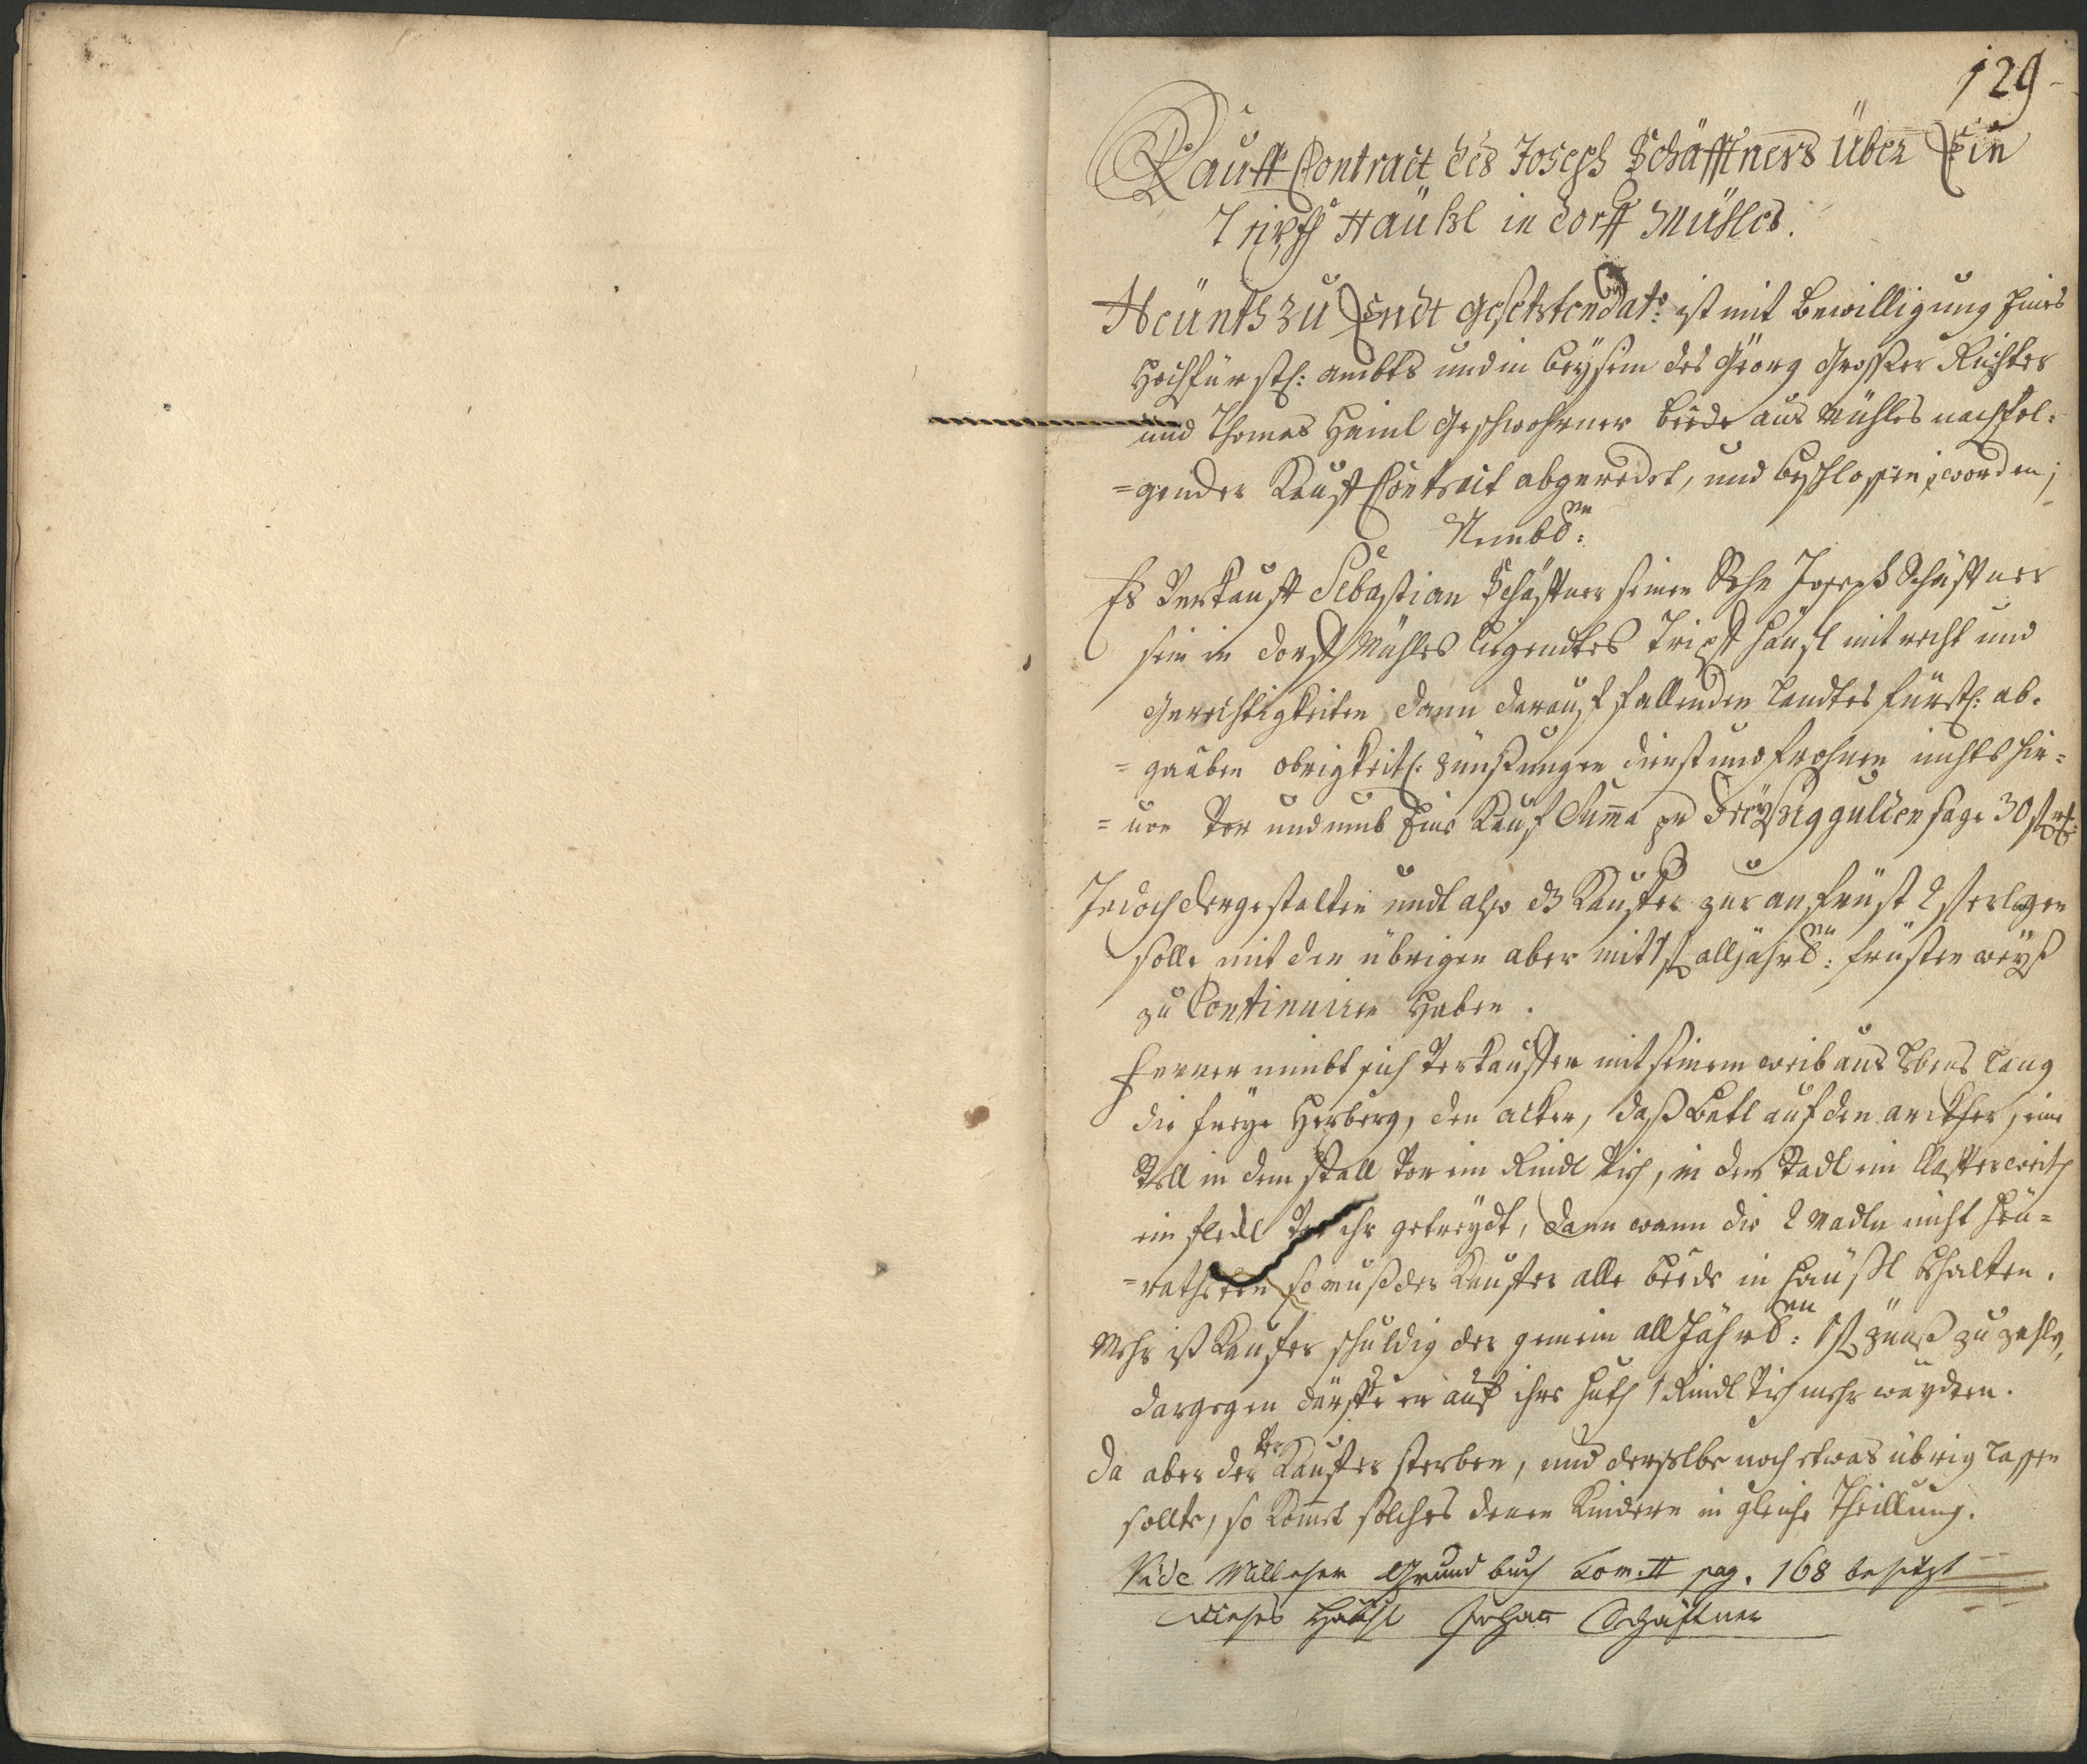 129
Kauff Contract des Joseph Schäfftners Über Ein
Tripfh Häußl in dorff Mühles.
Heünth zu Endt gesetzten dato: ist mit bewilligung Eines
Hochfürstl: ambts und in beysein des Geörg Großer Richter
und Thomas Haiml Geschwohrner beede aus Mühles nachfol:
=gender Kauff Contract abgeredet, und beschlossen worden;
Nembl:en
Es Verkaufft Sebastian Schäfftner seinen Sohn Joseph Schäfftner
sein in dorff Mühles liegendtes Tripfh häusl mit recht und
Gerechtigkeiten dann darauf fallenden Landtes fürstl: ab:
=gaaben obrigkeitl: zünßungen dienst und frohnen nichts hie=
=von Vor und umb Eine Kauf Summa pr dreyßig gulden sage 30 f
Jedoch dergestalten undt also dz Kauffer zur anfrüst 2 f erlegen
solle mit den übrigen aber mit 1 f alljährl:en früsten weyß
zu Continuiren haben.
Ferner nimbt sich Verkauffer mit seinem weib aus lebens lang
die freye Herberg, den acker, daß Bettl auf den anckher, eine
Stell in dem stall Vor ein Rindl Vich, in dem Stadl ein Claffter weith
ein fleckl Vor ihr getreydt, dann wann die 2 Madln nicht heü=
=ratheten so muß der Kauffer alle beede in häußl behalten.
Mehr ist Kaufer schuldig der gemein all Jährl:en 1 f zünß zu zahlen,
dargegen därffe er auf ihre huth 1 Rindl Vich mehr wayden.
Da aber der Ver Kauffer sterben, und derselbe noch etwas übrig lassen
sollte, so kommet solches denen Kindern in gleiche Theillung.
Vide Milleser Grundbuch Tom. II pag. 168 besitzt
dieses Häusl Johann Schäftner